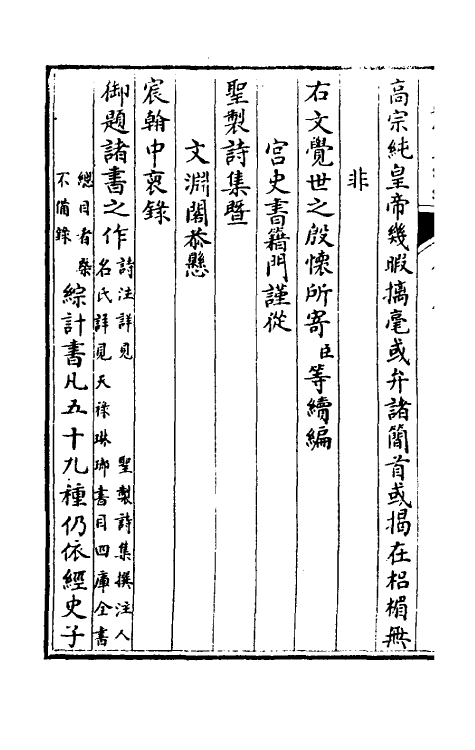 高宗純皇帝幾暇摛毫或弁諸簡首或揭在梠楣無
非
右文覺世之殷懷所寄臣等續編
宮史書籍門謹從
聖製詩集暨
文淵閣恭懸
宸翰中裒錄
御題諸書之作詩注詳見　聖製詩集撰注人
名氏詳見天祿琳瑯書目四庫全書
總目者槩
不備錄
綜計書凡五十九種仍依經史子